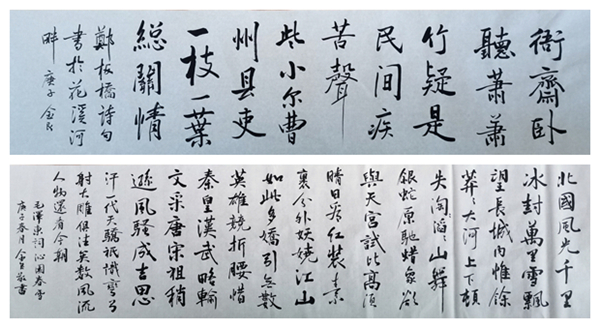 衙齋卧
聽蕭蕭
竹疑是
民间疾
苦聲
些小尔曹
州县吏
一枝一葉
総關情
鄭板橋詩句
書於花溪河
畔 庚子
北國風光千里
冰封萬里雪飄
望長城内惟餘
莽〻大河上下頓
失滔〻山舞
銀蛇原馳蜡象欲
與天宫試比高須
晴日看红装素
裹分外妖娆江山
如此多嬌引無數
英雄競折腰惜
秦皇漢武略輸
文采唐宋祖稍
遜風騷成吉思
汗一代天驕祇識彎弓
射大雕俱往矣數風流
人物還看今朝
毛澤東詞沁園春雪
庚子春月